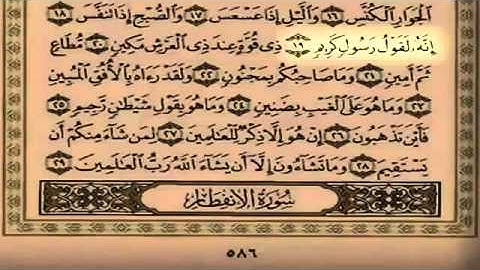 ٱلْجَوَارِ ٱلْكُنَّسِ ١٦ وَٱلَّيْلِ إِذَا عَسْعَسَ ١٧ وَٱلصُّبْحِ إِذَا تَنَفَّسَ ١٨
إِنَّهُۥ لَقَوْلُ رَسُولٍ كَرِيمٍ ١٩ ذِى قُوَّةٍ عِندَ ذِى ٱلْعَرْشِ مَكِينٍ ٢٠ مُّطَاعٍ
ثَمَّ أَمِينٍ ٢١ وَمَا صَاحِبُكُم بِمَجْنُونٍ ٢٢ وَلَقَدْ رَءَاهُ بِٱلْأُفُقِ ٱلْمُبِينِ
٢٣ وَمَا هُوَ عَلَى ٱلْغَيْبِ بِضَنِينٍ ٢٤ وَمَا هُوَ بِقَوْلِ شَيْطَٰنٍ رَّجِيمٍ ٢٥
فَأَيْنَ تَذْهَبُونَ ٢٦ إِنْ هُوَ إِلَّا ذِكْرٌ لِّلْعَٰلَمِينَ ٢٧ لِمَن شَآءَ مِنكُمْ أَن
يَسْتَقِيمَ ٢٨ وَمَا تَشَآءُونَ إِلَّآ أَن يَشَآءَ ٱللَّهُ رَبُّ ٱلْعَٰلَمِينَ ٢٩
سُورَةُ ٱلْإِنفِطَارِ
٥٨٦